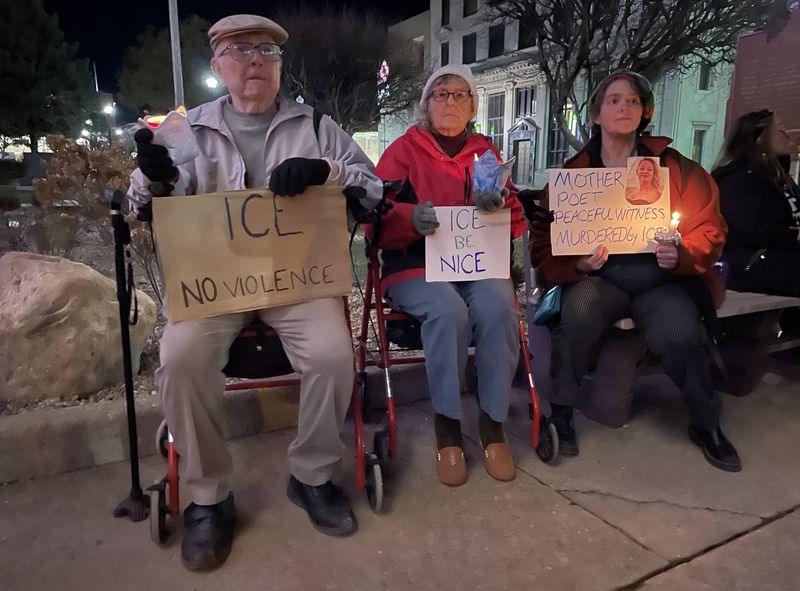 ICE
NO VIOLENCE
ICE
BE
NICE
MOTHER
POET
PEACEFUL WITNESS
MURDERED By ICE